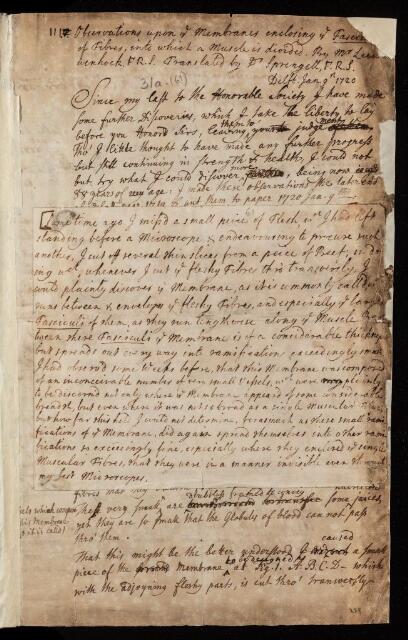 1117 Observations upon yᵉ Membranes enclosing yᵉ Fasciculi
of Fibres, into which a Muscle is divided. By Mr Leeu-
wenhoek. F.R.S. Translated by Dʳ Sprengell. F.R.S.
Delft. Jan. 9ᵗʰ 1720
31a. (61)
Since my last to the Honorable Society I have made
some further Discoveries, which I take the liberty to lay
before you Honord Sirs, leaving them to judgments
Tho' I little thought to have made any further progress
but still continuing in strength & health, I could not
but try what I could discover, being now
88 years of age; I made these observations the later end
to put them to paper 1720 Jan. 9
Some time ago I miss'd a small peice of Flesh wᶜʰ I had left
standing before a Microscope, & endeavouring to procure such
another, I cut off several thin slices from a piece of Beef;
whenever I cut yᵉ fleshy Fibres thro' transversly, I
could plainly discover yᵉ Membrane, as it is commonly call'd,
runs between & envelopes yᵉ Fleshy Fibres, and especially yᵉ large
Fasciculi of them, as they run lengthwise along yᵉ Muscle
tween these Fasciculi yᵉ Membrane is of a considerable thickness
but spreads out every way into ramifications exceedingly small
I had observ'd some weeks before, that this Membrane was compos'd
of an inconceivable number of very small Vessels, wᶜʰ were plainly
to be discern'd not only where yᵉ Membrane appear'd of some considerable
breadth, but even where it was not so broad as a single Muscular Fibre
but how far this held I could not determine, forasmuch as these small rami-
fications of yᵉ Membrane, did again spread themselves into other rami-
fications so exceedingly fine, especially where they encircled yᵉ single
Muscular Fibres, that they were in a manner invisible even thro'
my best Microscopes.
Fibres
Vessels which compose
this Membrane
(as it is call'd)
less very small, are doubtless fraited to convey some juices,
yet they are so small that the Globuls of blood can not pass
thro' them.
That this might be the better understood I caused a small
piece of the Membrane to be designed as Fig. 1. A.B.C.D. which
with the adjoyning fleshy parts, is cut thro' transversly